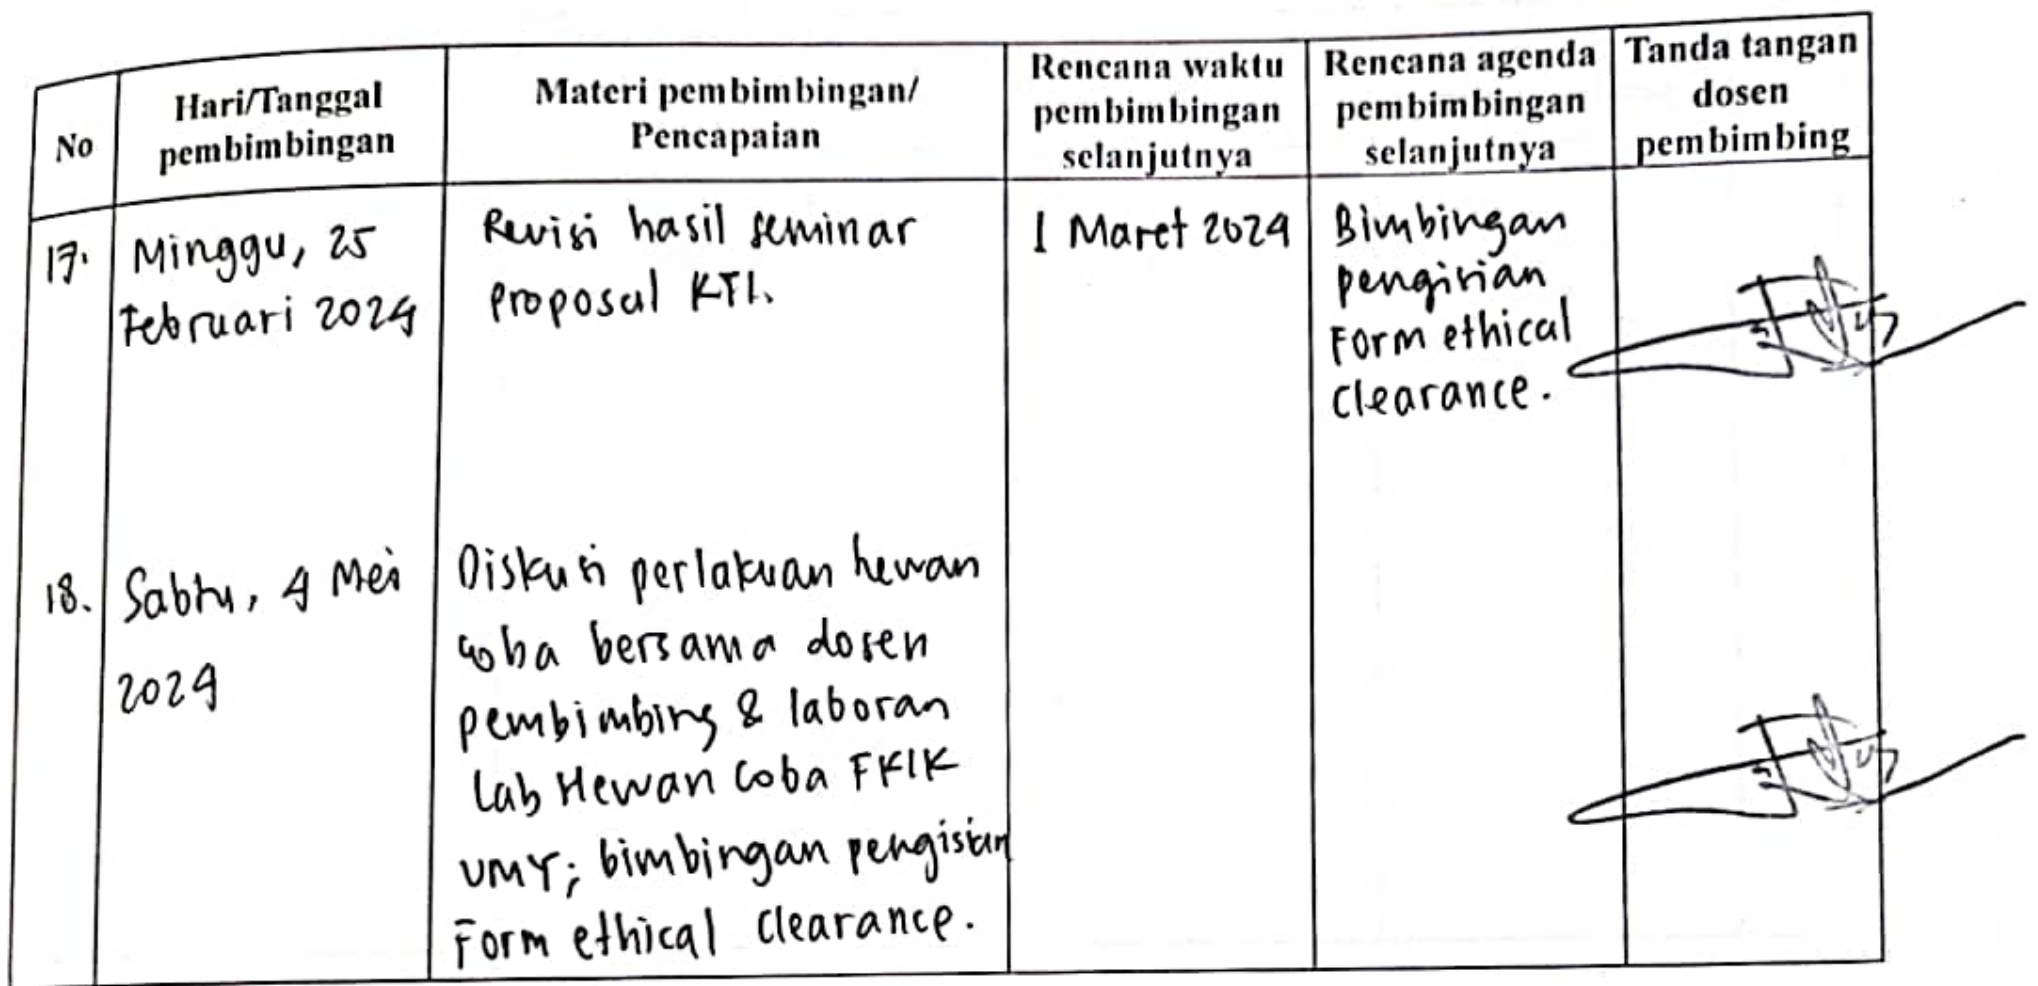 No
Hari/Tanggal
pembimbingan
Materi pembimbingan/
Pencapaian
Rencana waktu
pembimbingan
selanjutnya
Rencana agenda
pembimbingan
selanjutnya
Tanda tangan
dosen
pembimbing
17.
Minggu, 25
Februari 2024
Revisi hasil seminar
proposal KTI.
1 Maret 2024
Bimbingan
pengisian
Form ethical
clearance.
18.
Sabtu, 4 Mei
2024
Diskusi perlakuan hewan
coba bersama dosen
pembimbing & laboran
Lab Hewan Coba FKIK
UMY; bimbingan pengisian
Form ethical clearance.